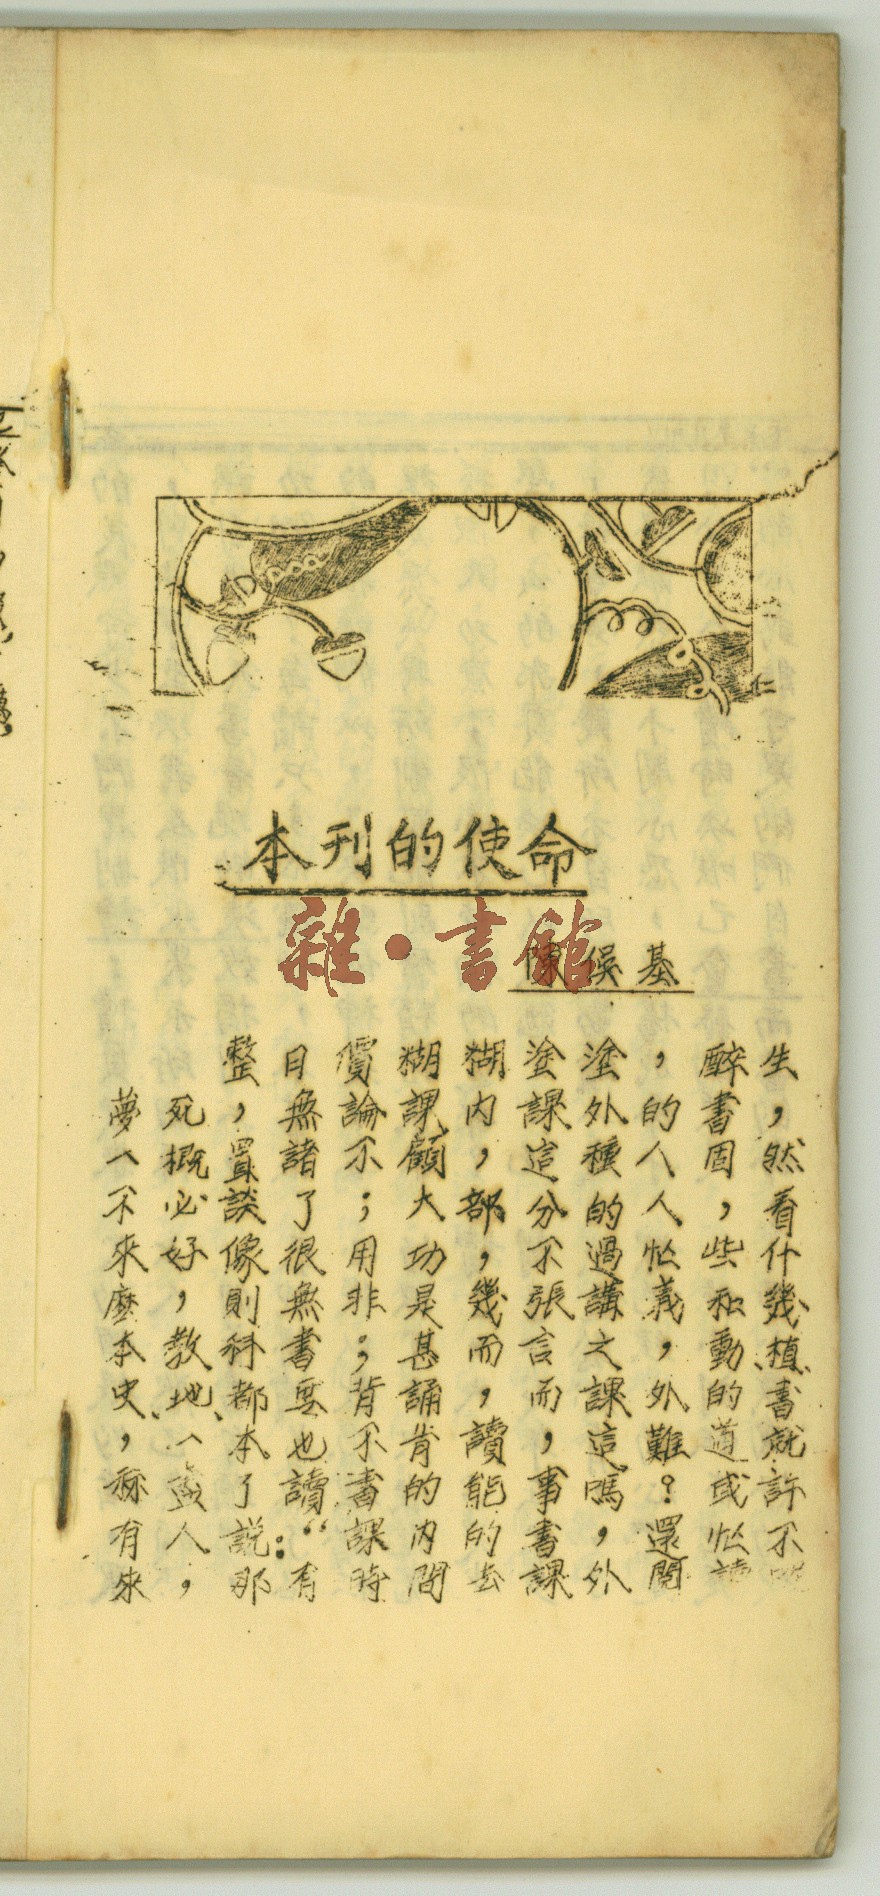 本刊的使命
雜·書館
陳俁基
整日價糊糊塗塗，醉生
夢死，無論課內，課外的書，
一概置諸不顧，這種人固然
不必談了；大部分的人，看
來好像很用功，不過忙些什
麼，則無非是幾張講義和幾
本教科書；甚而言之，動植、
史地、都要背誦，而課外的書
，一本也不肯讀，這難道就
稱盡了讀書的能事嗎？或許
有人說：“課內的書，還忙不
來，那有時間去課外閱讀